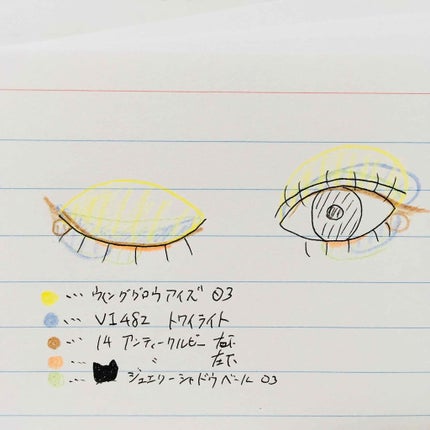 … ウィンググロウアイズ 03
… VI482 トワイライト
… 14 アンティークルビー 右下
… 〃 左下
… ジュエリーシャドウベール 03